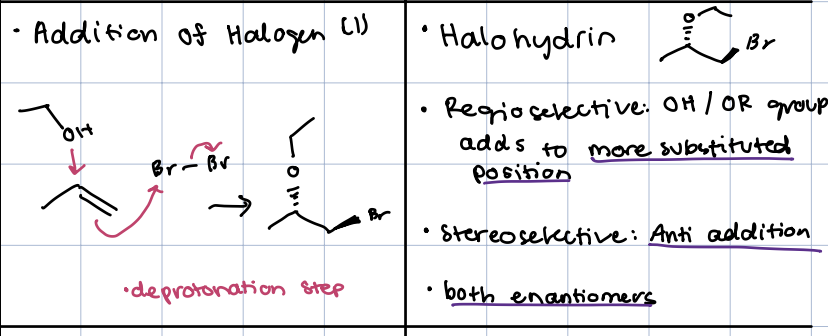 • Addition of Halogen (1)
OH
Br - Br
O
Br
•deprotonation step
• Halohydrin
O
Br
• Regioselective: OH / OR group
adds to more substituted
position
• Stereoselective: Anti addition
• both enantiomers